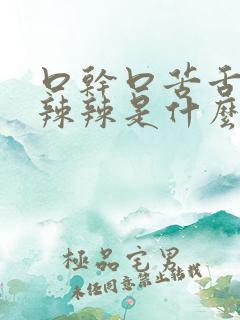 口幹口苦舌
辣辣是什麼
極品宅男
未經同意禁止轉載